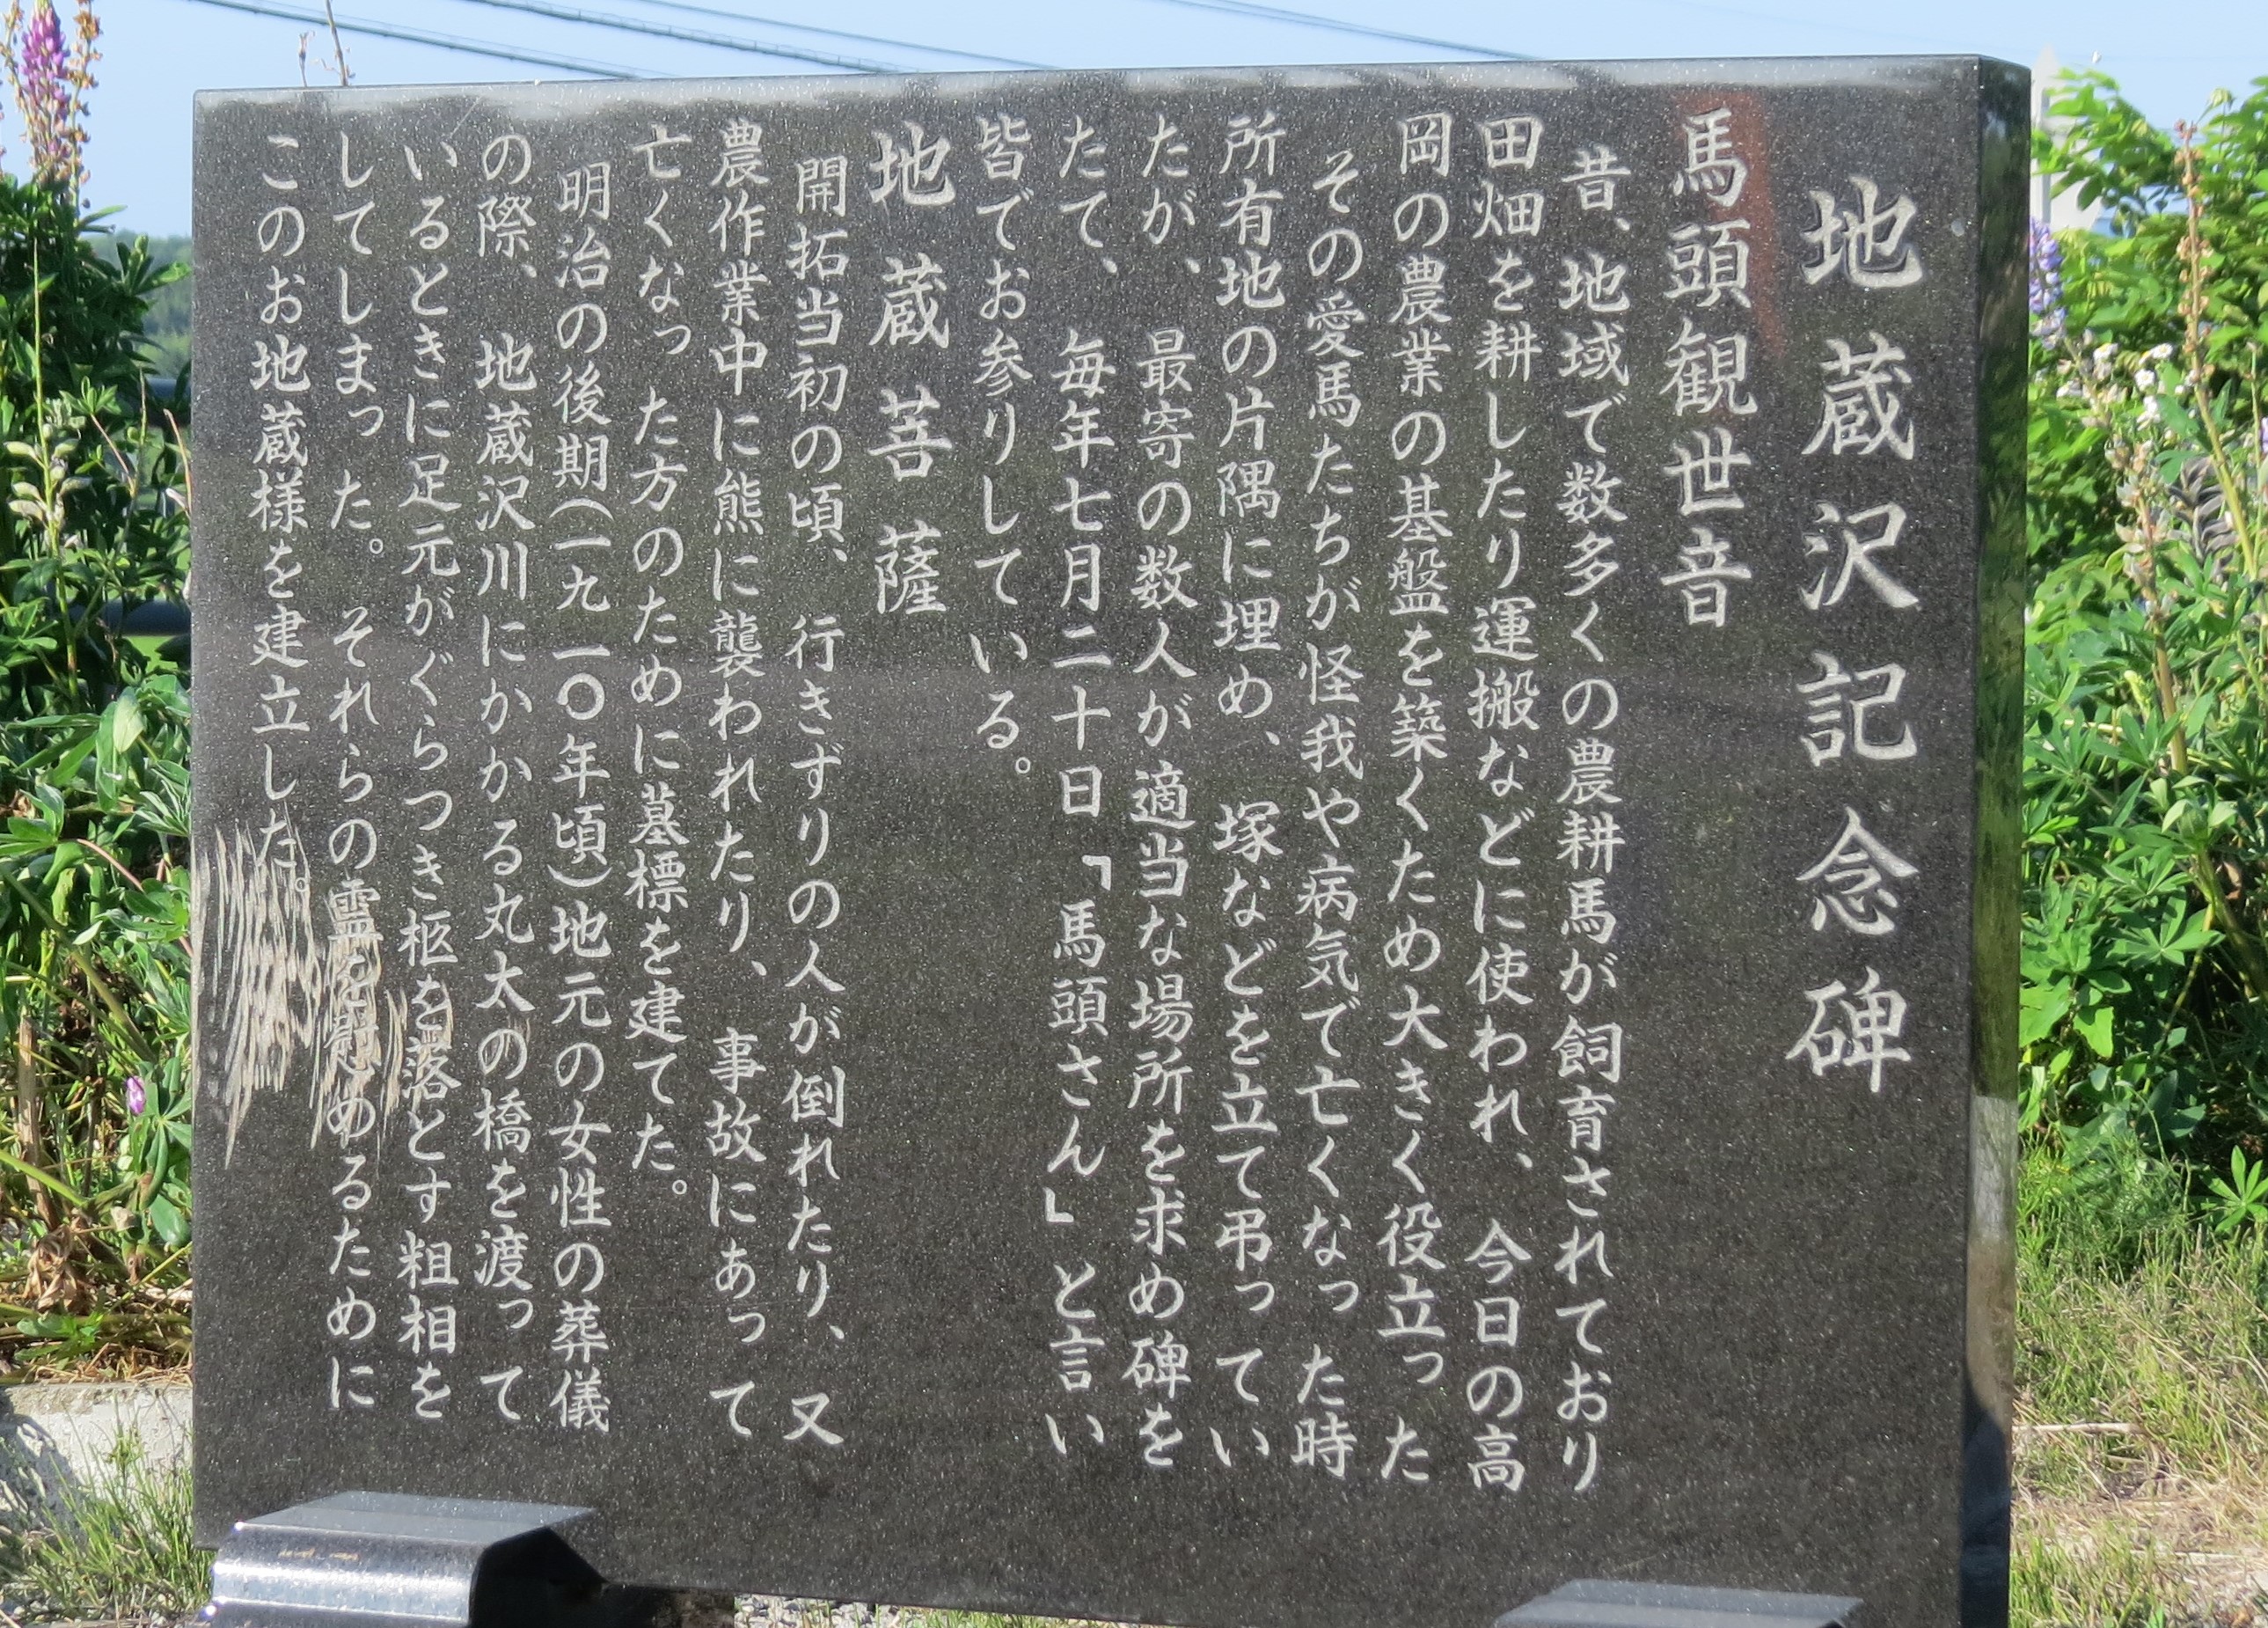 地蔵沢記念碑
馬頭観世音
昔、地域で数多くの農耕馬が飼育されており
田畑を耕したり運搬などに使われ、今日の高
岡の農業の基盤を築くため大きく役立った
その愛馬たちが怪我や病気で亡くなった時
所有地の片隅に埋め、塚などを立て弔ってい
たが、最寄の数人が適当な場所を求め碑を
たて、毎年七月二十日「馬頭さん」と言い
皆でお参りしている。
地蔵菩薩
開拓当初の頃、行きずりの人が倒れたり、又
農作業中に熊に襲われたり、事故にあって
亡くなった方のために墓標を建てた。
明治の後期(一九一〇年頃)地元の女性の葬儀
の際、地蔵沢川にかかる丸太の橋を渡って
いるときに足元がぐらつき柩を落とす粗相を
してしまった。それらの霊を慰めるために
このお地蔵様を建立した。